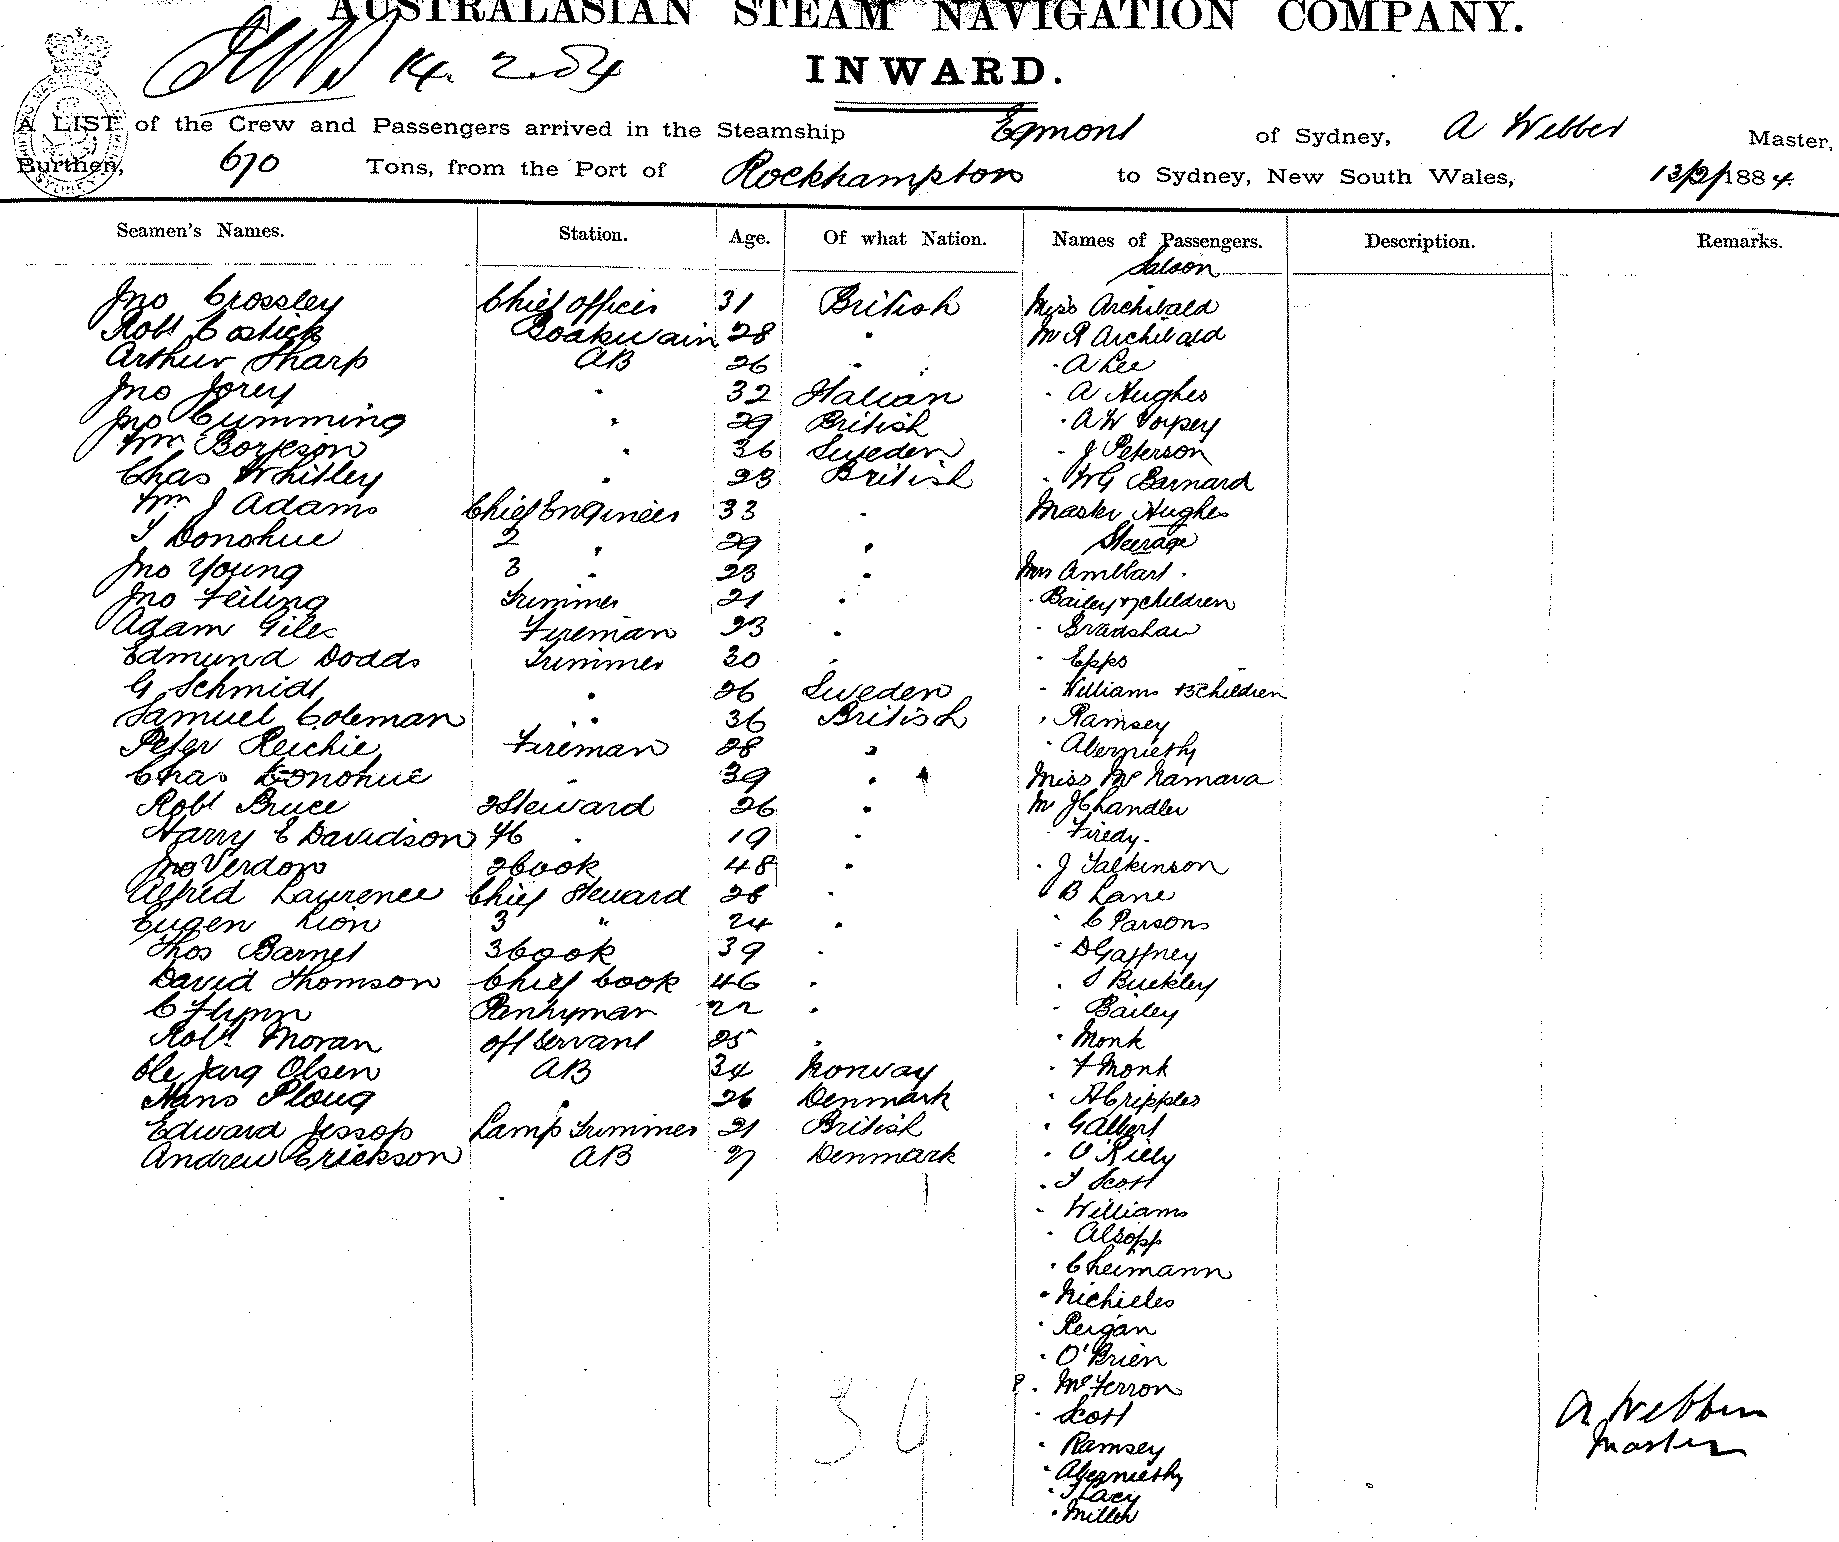 AUSTRALASIAN STEAM NAVIGATION COMPANY.
14. 2. 84
INWARD.
A LIST of the Crew and Passengers arrived in the Steamship Egmont of Sydney, A Webber Master,
Burthen, 670 Tons, from the Port of Rockhampton to Sydney, New South Wales, 13/2/1884.
Seamen's Names. Station. Age. Of what Nation. Names of Passengers. Description. Remarks.
Saloon
Jno Crossley Chief Officer 31 British Miss Archibald
Robt Costick Boatswain 28 " Mr R Archibald
Arthur Sharp AB 26 " " A Lee
Jno Jorey " 32 Italian " A Hughes
Jno Cumming " 29 British " A W Vorpey
Wm Borjeson " 36 Sweden " J Peterson
Chas Whitley " 23 British " W G Barnard
Wm J Adams Chief Engineer 33 " Master Hughes
T Donohue 2 " 29 " Steerage
Jno Young 3 " 23 " Mrs
Jno Feiling Trimmer 21 " " Bailey & 7 children
Adam Giles Fireman 23 " " Bradshaw
Edmund Dodds Trimmer 30 " " Epps
G Schmidt " 26 Sweden " Williams & 3 Children
Samuel Coleman " 36 British " Ramsey
Peter Reichie Fireman 28 " " Abernethy
Chas Donohue " 39 " Miss McNamara
Robt Bruce 2 Steward 26 " Mr J Chandler
Harry C Davidson 4 " 19 " " Firedy
Jno Verdon 2 Cook 48 " " J Talkinson
Alfred Laurence Chief Steward 28 " " B Lane
Eugen Lion 3 " 24 " " C Parsons
Thos Barnet 3 Cook 39 " " D Gaffney
David Thomson Chief Cook 46 " " J Buckley
C Flynn Pantryman 22 " " Bailey
Robt Moran off Servant 25 " " Monk
Ole Jarg Olsen AB 34 Norway " F Monk
Hans Ploug " 26 Denmark " A Cripples
Edward Jessop Lamp Trimmer 21 British " G Albert
Andrew Erickson AB 27 Denmark " O Riely
" T Scott
" Williams
" Alsopp
" C Heimann
" Nichieles
" Reigan
" O'Brien
" McFerron
" Scott
" Ramsey
" Abernethy
" T Lacy
" Miller
39
A Webber
Master